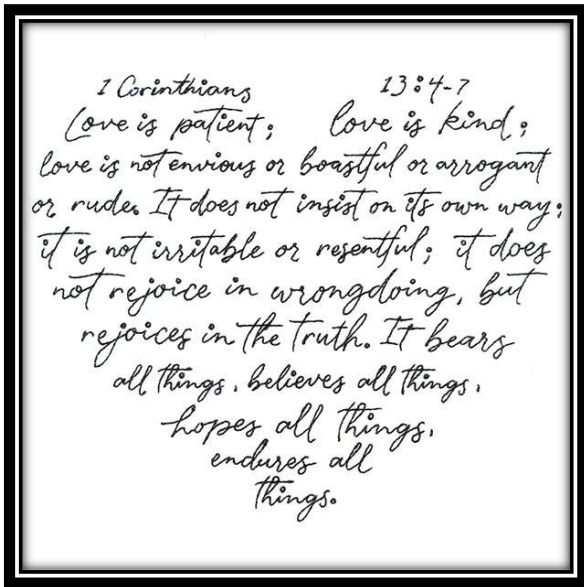 1 Corinthians 13:4-7
Love is patient; love is kind;
love is not envious or boastful or arrogant
or rude. It does not insist on its own way;
it is not irritable or resentful; it does
not rejoice in wrongdoing, but
rejoices in the truth. It bears
all things, believes all things,
hopes all things,
endures all
things.